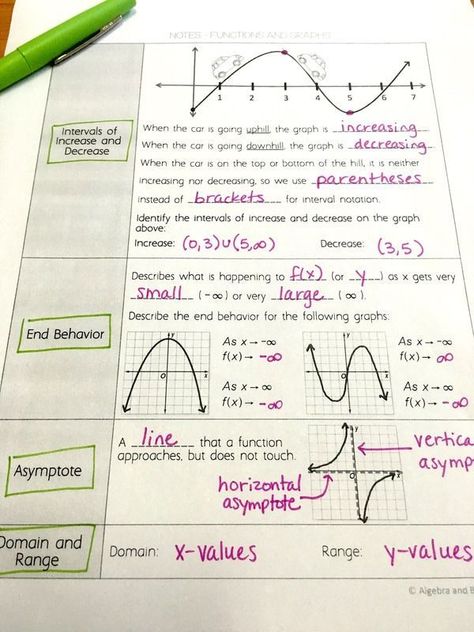 NOTES - FUNCTIONS AND GRAPHS
1 2 3 4 5 6 7
Intervals of
Increase and
Decrease
When the car is going uphill, the graph is increasing.
When the car is going downhill, the graph is decreasing.
When the car is on the top or bottom of the hill, it is neither
increasing nor decreasing, so we use parentheses
instead of brackets for interval notation.
Identify the intervals of increase and decrease on the graph
above:
Increase: (0,3)∪(5,∞) Decrease: (3,5)
End Behavior
Describes what is happening to f(x) (or y) as x gets very
small (-∞) or very large (∞).
Describe the end behavior for the following graphs:
y
x
O
As x → -∞
f(x) → -∞
As x → ∞
f(x) → -∞
y
x
O
As x → -∞
f(x) → ∞
As x → ∞
f(x) → -∞
Asymptote
A line that a function
approaches, but does not touch.
horizontal
asymptote
y
vertica
asymp
Domain and
Range
Domain: x-values Range: y-values
© Algebra and B